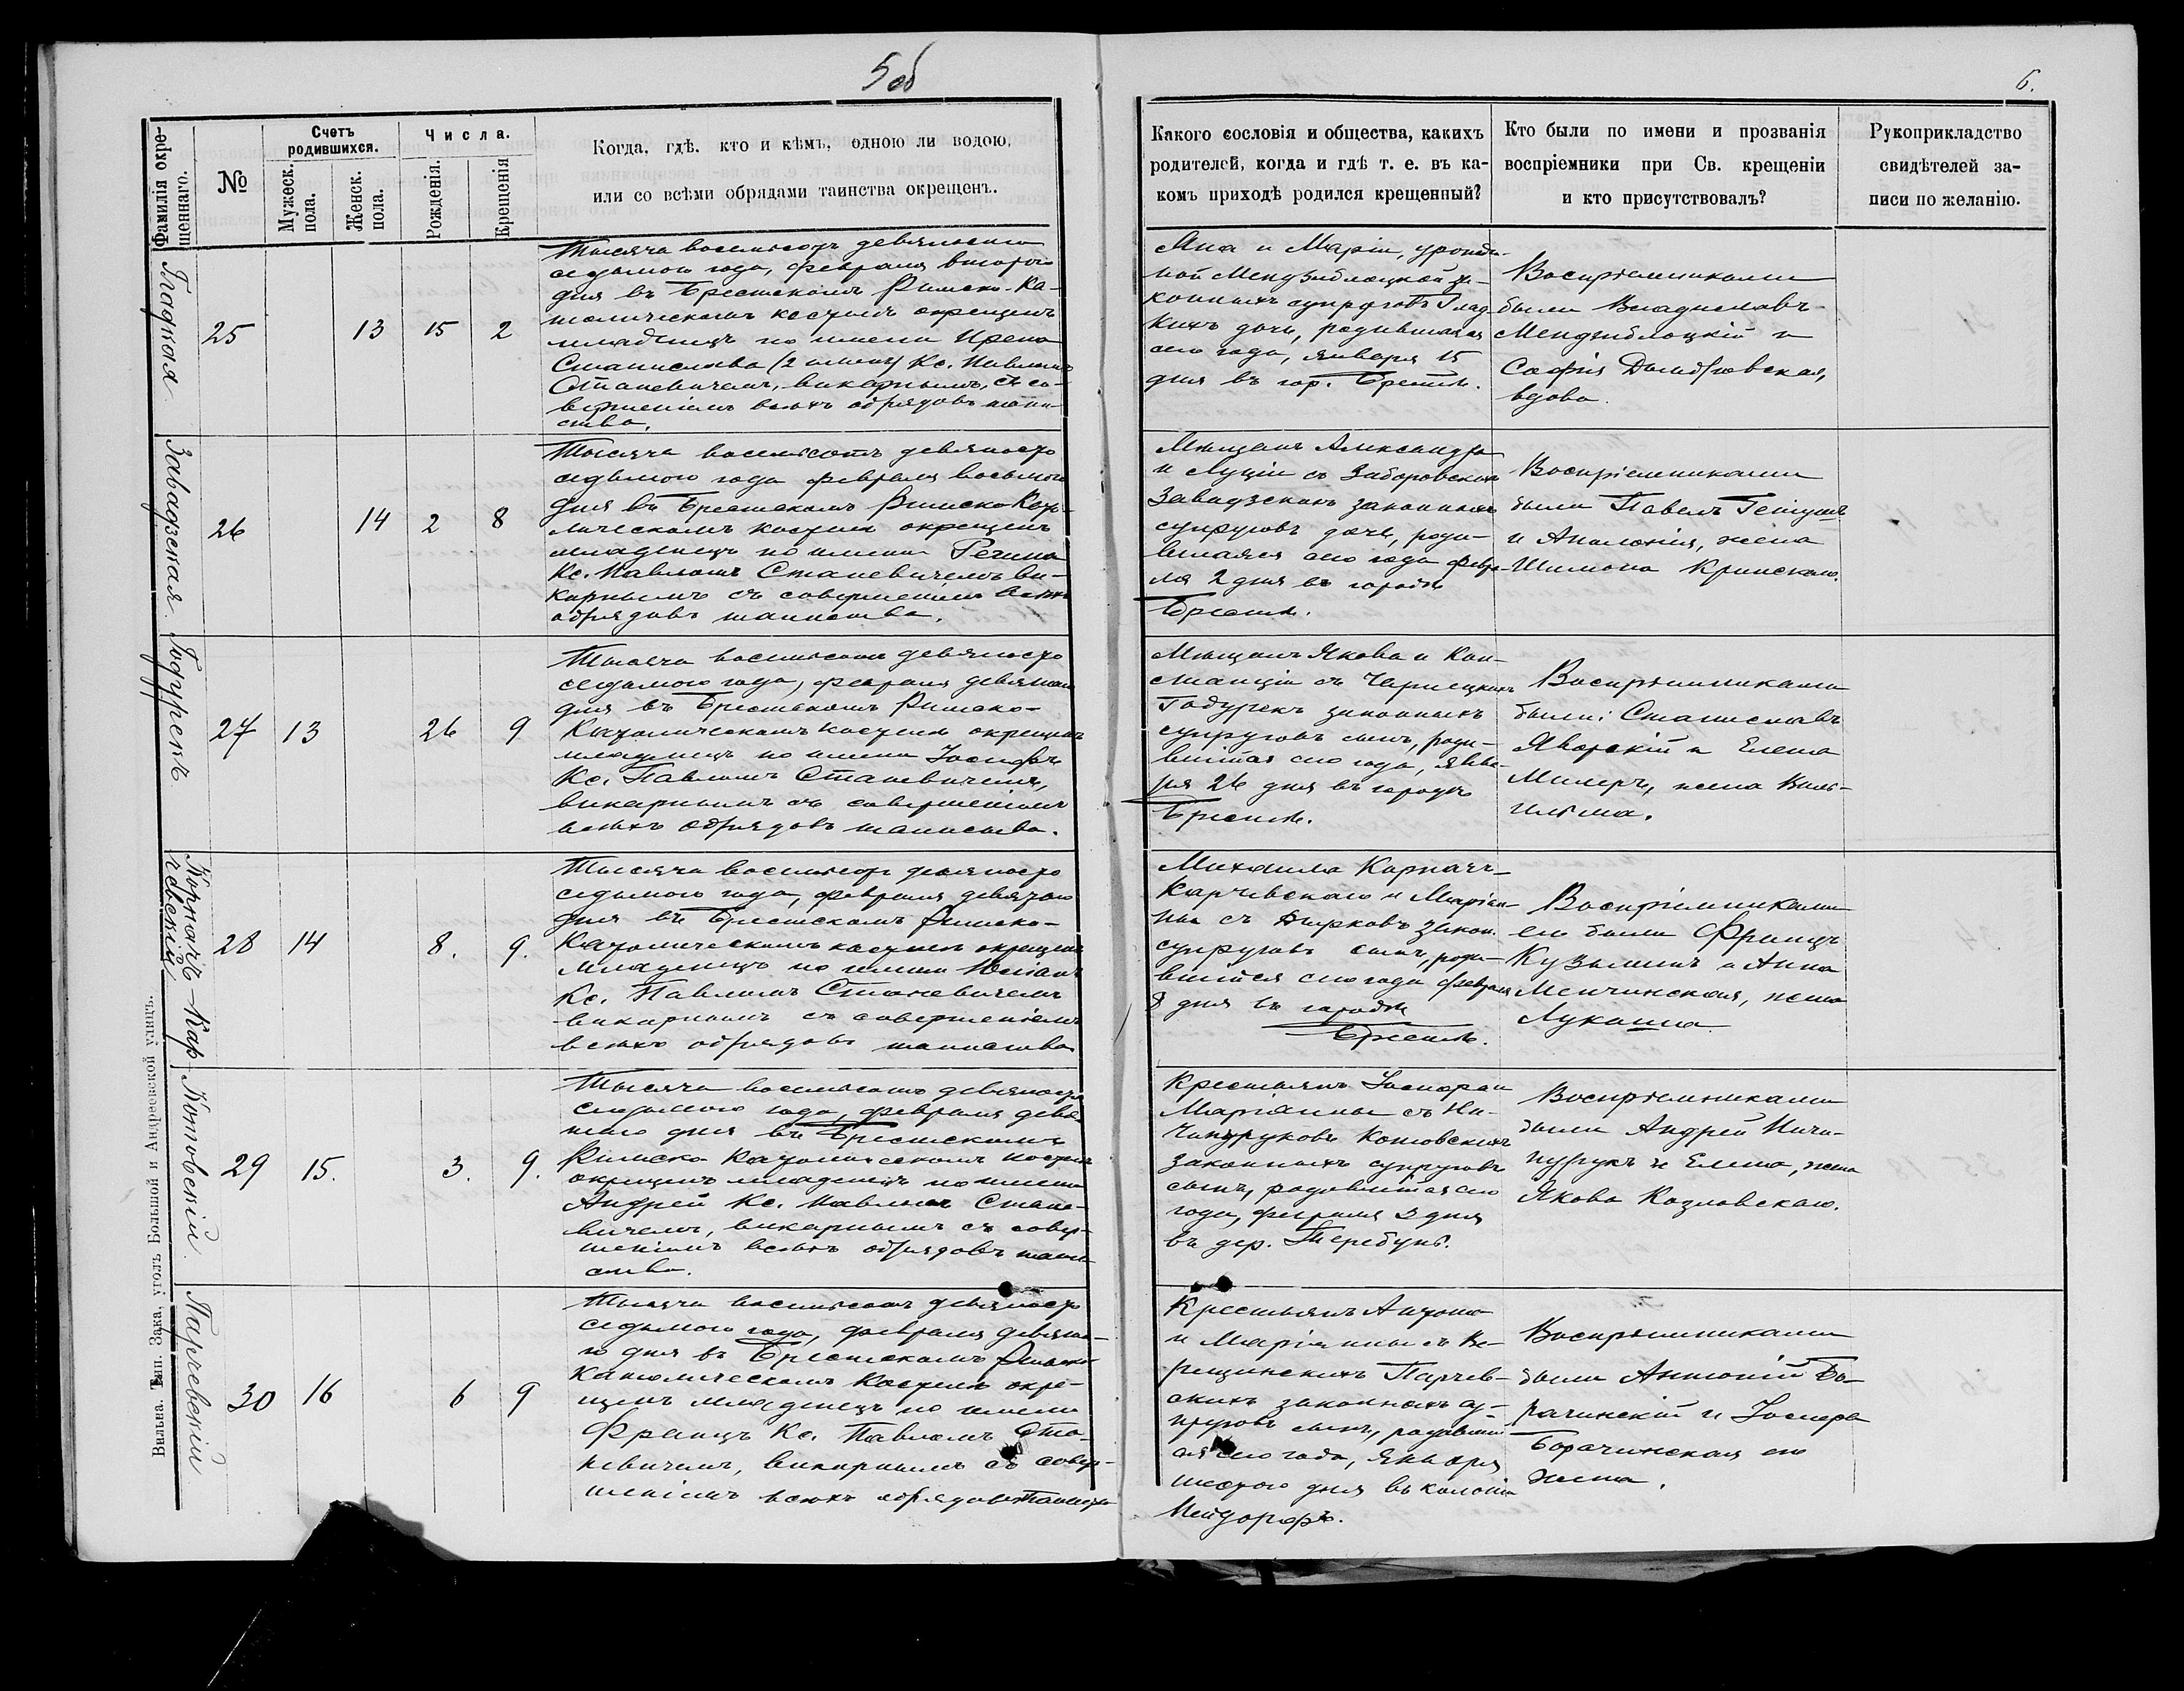 5 об
6.
Фамилія окре-
щеннаго.
№
Счетъ
родившихся.
Мужеск.
пола.
Женск.
пола.
Числа.
Рожденія.
Крещенія
Когда, гдѣ, кто и кѣмъ, одною ли водою,
или со всѣми обрядами таинства окрещенъ.
Какого сословія и общества, какихъ
родителей, когда и гдѣ т. е. въ ка-
комъ приходѣ родился крещенный?
Кто были по имени и прозванія
воспріемники при Св. крещеніи
и кто присутствовалъ?
Рукоприкладство
свидѣтелей за-
писи по желанію.
Гладкая
25
13
15
2
Тысяча восемьсотъ девяносто
седьмого года, февраля второго
дня въ Брестскомъ Римско-Ка-
толическомъ костелѣ окрещенъ
младенецъ по имени Ирена
Станислава (2 имен.) Кс. Павломъ
Станевичемъ, викарнымъ, съ со-
вершеніемъ всѣхъ обрядовъ таин-
ства.
Яна и Маріи, урожде-
ной Мендзиблоцкой за-
конныхъ супруговъ Глад-
кихъ дочь, родившаяся
сего года, января 15
дня въ гор. Брестѣ.
Воспріемниками
были Владиславъ
Мендзиблоцкій и
Софія Домбровская,
вдова.
Завадзская
26
14
2
8
Тысяча восемьсотъ девяносто
седьмого года февраля восьмого
дня въ Брестскомъ Римско-Като-
лическомъ костелѣ окрещенъ
младенецъ по имени Регина
Кс. Павломъ Станевичемъ ви-
карнымъ съ совершеніемъ всѣхъ
обрядовъ таинства.
Мѣщанъ Александра
и Луціи съ Заборовскихъ
Завадзскихъ законныхъ
супруговъ дочь, роди-
вшаяся сего года февра-
ля 2 дня въ городѣ
Брестѣ.
Воспріемниками
были Павелъ
и Аполонія, жена
Шимона Кринскаго.
Годурекъ
27
13
26
9
Тысяча восемьсотъ девяносто
седьмого года, февраля девятаго
дня въ Брестскомъ Римско-
Католическомъ костелѣ окрещенъ
младенецъ по имени Іосифъ
Кс. Павломъ Станевичемъ,
викарнымъ съ совершеніемъ
всѣхъ обрядовъ таинства.
Мѣщанъ Якова и Кон-
станціи съ Чернецкихъ
Годурекъ законныхъ
супруговъ сынъ, роди-
вшійся сего года, янва-
ря 26 дня въ городѣ
Брестѣ.
Воспріемниками
были: Станиславъ
Яворскій и Елена
Милеръ, жена Виль-
гельма.
Корначъ-Кар
чевскій
28
14
8.
9.
Тысяча восемьсотъ девяносто
седьмого года, февраля девятого
дня въ Брестскомъ Римско-
Католическомъ костелѣ окрещенъ
младенецъ по имени
Кс. Павломъ Станевичемъ
викарнымъ съ совершеніемъ
всѣхъ обрядовъ таинства
Михаила Корначъ-
Карчевскаго и Маріан-
ны съ закон.
супруговъ сынъ, роди-
вшійся сего года февраля
8 дня въ городѣ
Брестѣ.
Воспріемниками
его были Францъ
Кузьминъ и Анна
Менчинская, жена
Лукаша
Котовскій
29
15.
3.
9.
Тысяча восемьсотъ девяносто
седьмого года, февраля девя-
таго дня въ Брестскомъ
Римско Католическомъ костелѣ
окрещенъ младенецъ по имени
Андрей Кс. Павломъ Стане-
вичемъ, викарнымъ съ совер-
шеніемъ всѣхъ обрядовъ таин-
ства.
Крестьянъ Іосифа и
Маріанны съ Ни-
Котовскихъ
законныхъ супруговъ
сынъ, родившійся сего
года, февраля 3 дня
въ дер. Теребунь.
Воспріемниками
были Андрей Ничи-
пурукъ и Елена, жена
Якова Козловскаго.
Парчевскій
30
16
6
9
Тысяча восемьсотъ девяносто
седьмого года, февраля девята-
го дня въ Брестскомъ Римско-
Католическомъ Костелѣ окре-
щенъ младенецъ по имени
Францъ Кс. Павломъ Ста-
невичемъ, викарнымъ съ совер-
шеніемъ всѣхъ обрядовъ таинства
Крестьянъ Антона
и Маріанны съ Ве-
рещинскихъ Парчев-
скихъ законныхъ су-
пруговъ сынъ, родивші-
йся сего года, января
шестого дня въ колоніи
Нейдорфъ.
Воспріемниками
были Антоній Бо-
рачинскій и Іосифа
Борачинская его
жена.
Вильна. Тип. Зака, уголъ Большой и Андреевской улицъ.